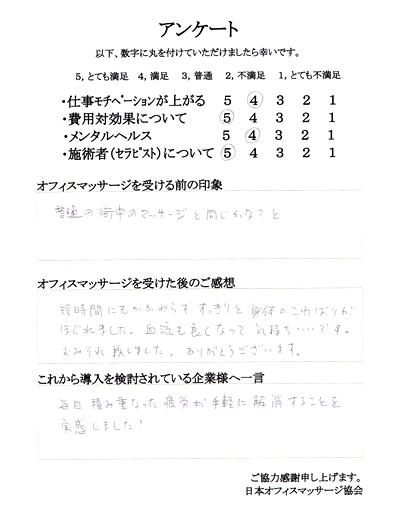 アンケート
以下、数字に丸を付けていただけましたら幸いです。
5, とても満足 4, 満足 3, 普通 2, 不満足 1, とても不満足
・仕事モチベーションが上がる 5 4 3 2 1
・費用対効果について 5 4 3 2 1
・メンタルヘルス 5 4 3 2 1
・施術者(セラピスト)について 5 4 3 2 1
オフィスマッサージを受ける前の印象
普通の街中のマッサージと同じかな?と
オフィスマッサージを受けた後のご感想
短時間にもかかわらずすっきりと身体のこわばりが
ほぐれました。血流も良くなって気持ちいいです。
おみそれ致しました。ありがとうございます。
これから導入を検討されている企業様へ一言
毎日積み重なった疲労が手軽に解消することを
実感しました!
ご協力感謝申し上げます。
日本オフィスマッサージ協会